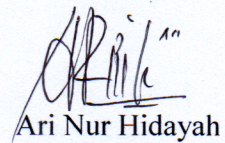 Ari Nur Hidayah